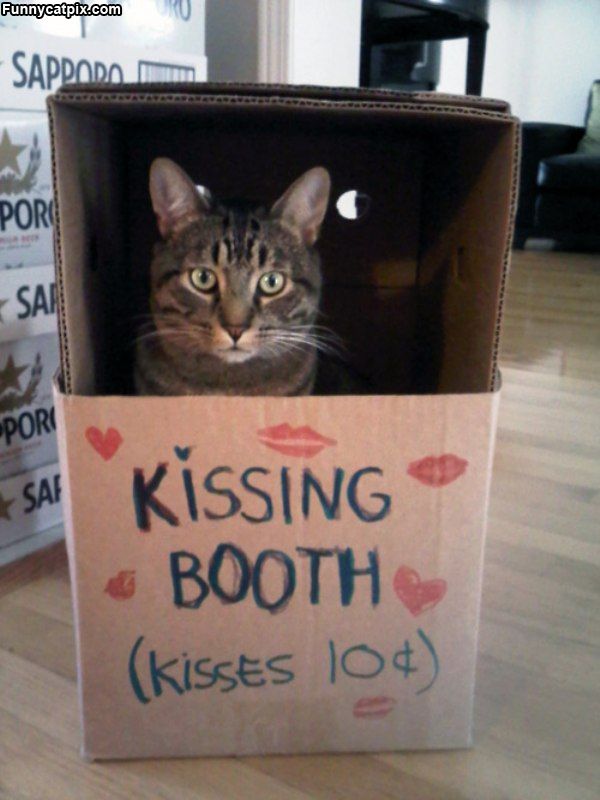 Funnycatpix.com
SAPPORO
SAP
KiSSING
BOOTH
(KiSSES 10¢)